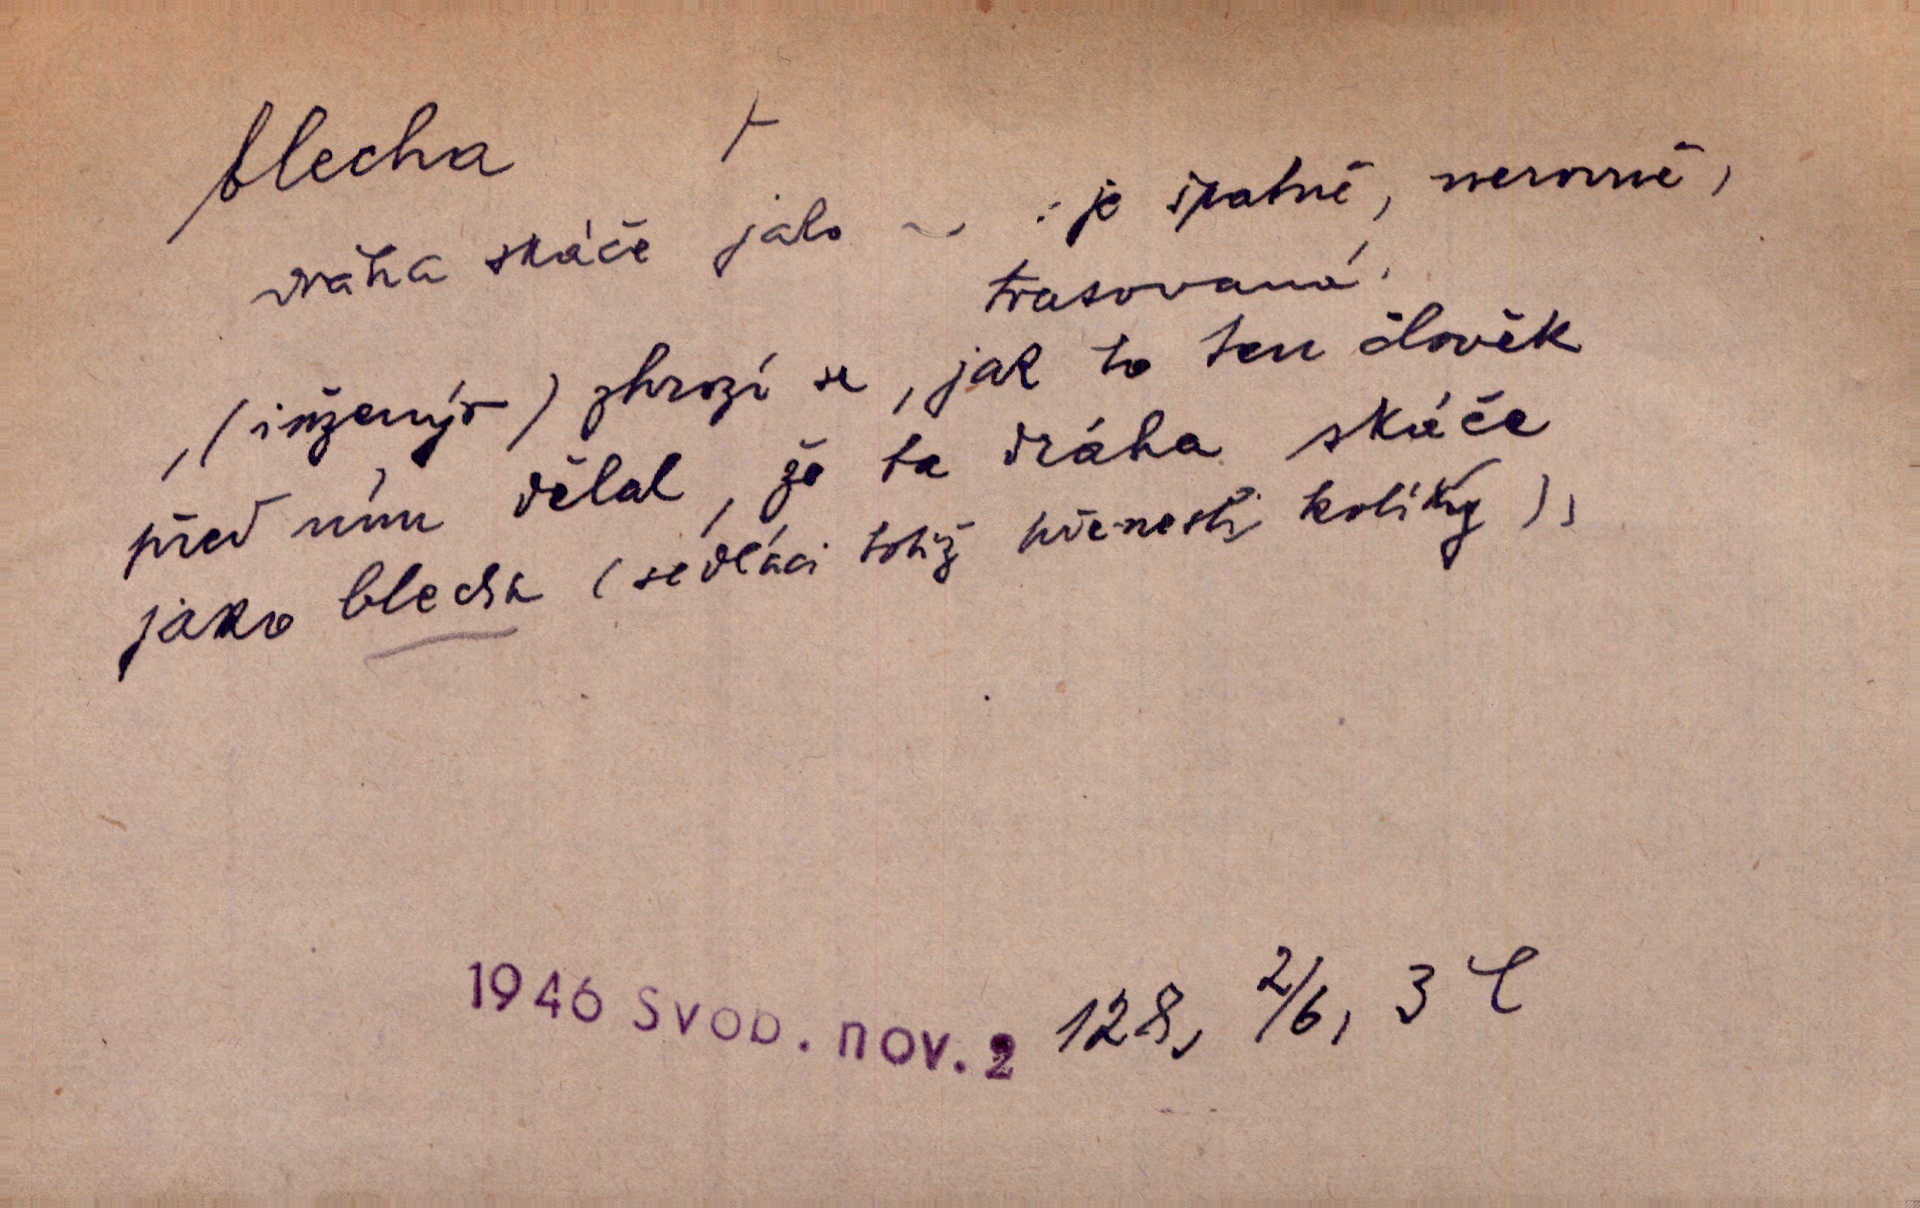 blecha
dráha skáče jako ~ : je špatně, nerovně,
trasovaná.
, (inženýr) zhrozí se, jak to ten člověk
před ním dělal, že ta dráha skáče
jako blecha (sedláci totiž přenesli kolíky),
1946 Svob. nov. 2 128, 2/6, 3